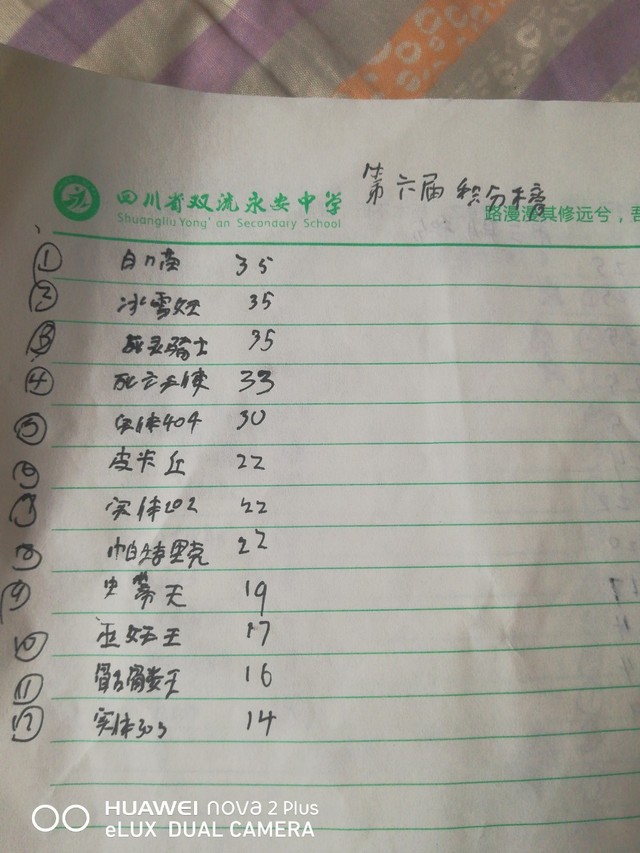 第六届 积分榜
四川省双流永安中学
Shuangliu Yong'an Secondary School
路漫漫其修远兮，吾
① 35
② 冰雪 35
③ 死灵骑士 35
④ 死亡天使 33
⑤ 实体404 30
⑥ 皮卡丘 22
⑦ 实体202 22
⑧ 帕特里克 22
⑨ 史蒂夫 19
⑩ 巫妖王 17
⑪ 骷髅王 16
⑫ 实体303 14
HUAWEI nova 2 Plus
eLUX DUAL CAMERA